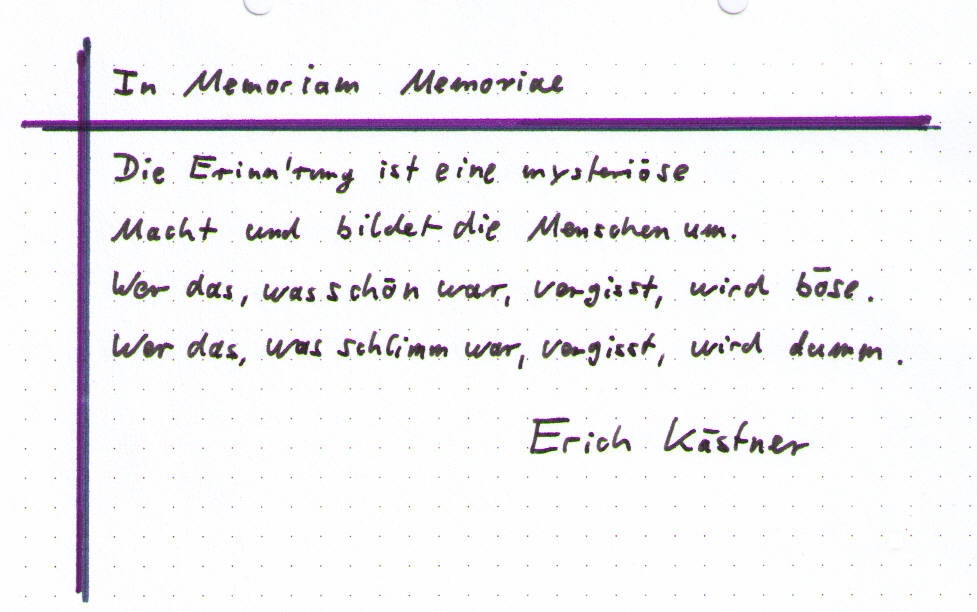 In Memoriam Memoriae
Die Erinn'rung ist eine mysteriöse
Macht und bildet die Menschen um.
Wer das, was schön war, vergisst, wird böse.
Wer das, was schlimm war, vergisst, wird dumm.
Erich Kästner